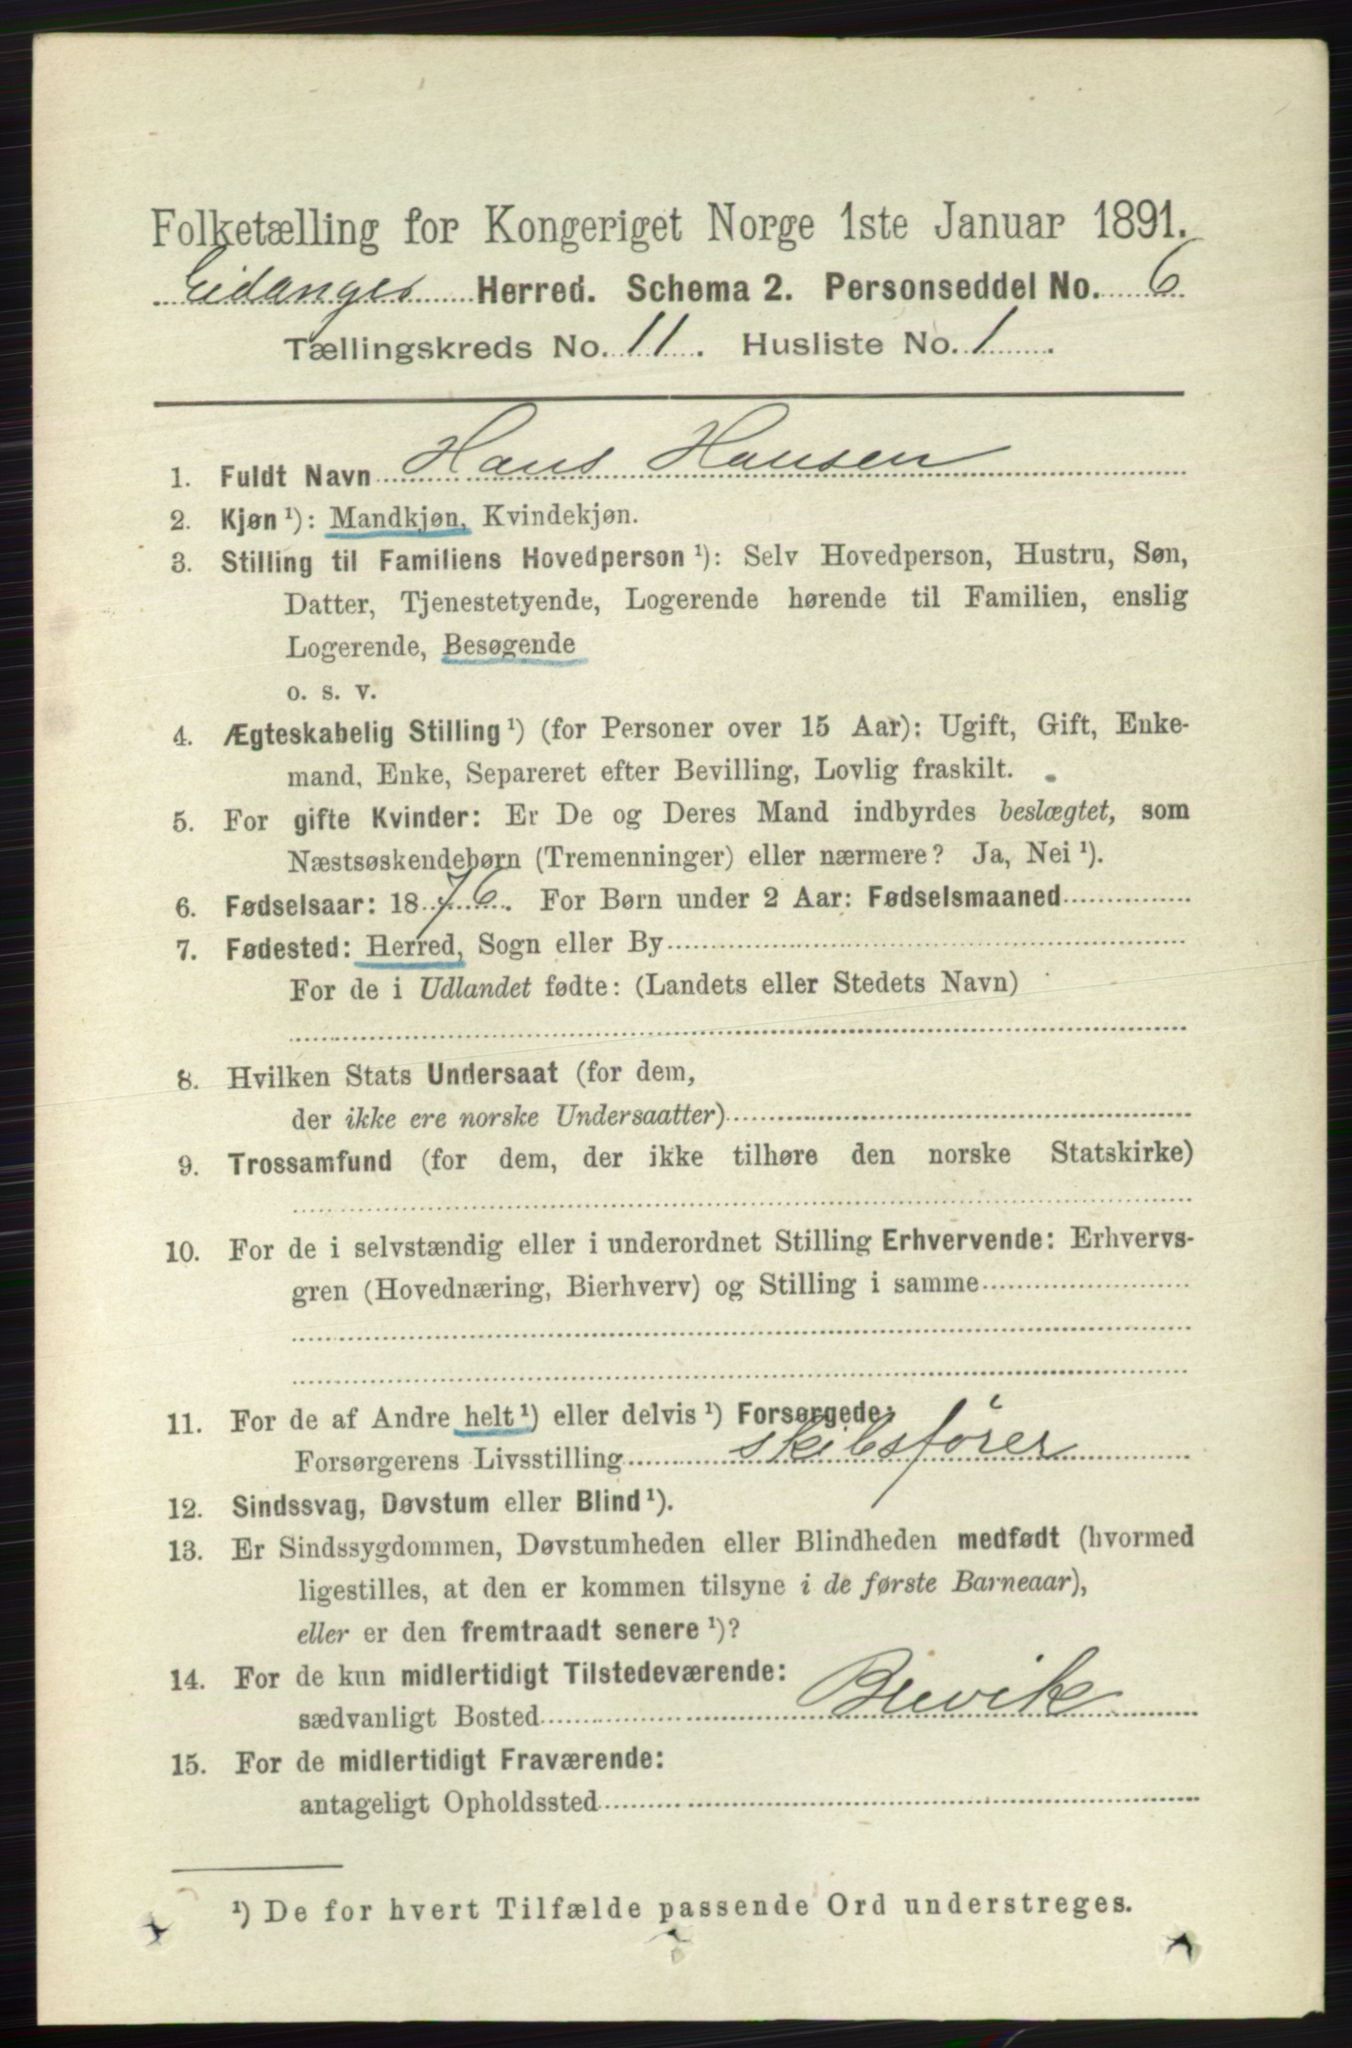 Folketælling for Kongeriget Norge 1ste Januar 1891.
Eidanger Herred. Schema 2. Personseddel No. 6
Tællingskreds No. 11. Husliste No. 1
1. Fuldt Navn Hans Hansen
2. Kjøn ¹): Mandkjøn, Kvindekjøn.
3. Stilling til Familiens Hovedperson ¹): Selv Hovedperson, Hustru, Søn,
Datter, Tjenestetyende, Logerende hørende til Familien, enslig
Logerende, Besøgende
o. s. v.
4. Ægteskabelig Stilling ¹) (for Personer over 15 Aar): Ugift, Gift, Enke-
mand, Enke, Separeret efter Bevilling, Lovlig fraskilt.
5. For gifte Kvinder: Er De og Deres Mand indbyrdes beslægtet, som
Næstsøskendebørn (Tremenninger) eller nærmere? Ja, Nei ¹).
6. Fødselsaar: 1876. For Børn under 2 Aar: Fødselsmaaned
7. Fødested: Herred, Sogn eller By
For de i Udlandet fødte: (Landets eller Stedets Navn)
8. Hvilken Stats Undersaat (for dem,
der ikke ere norske Undersaatter)
9. Trossamfund (for dem, der ikke tilhøre den norske Statskirke)
10. For de i selvstændig eller i underordnet Stilling Erhvervende: Erhvervs-
gren (Hovednæring, Bierhverv) og Stilling i samme
11. For de af Andre helt ¹) eller delvis ¹) Forsørgede:
Forsørgerens Livsstilling skibsfører
12. Sindssvag, Døvstum eller Blind ¹).
13. Er Sindssygdommen, Døvstumheden eller Blindheden medfødt (hvormed
ligestilles, at den er kommen tilsyne i de første Barneaar),
eller er den fremtraadt senere ¹)?
14. For de kun midlertidigt Tilstedeværende:
sædvanligt Bosted Brevik
15. For de midlertidigt Fraværende:
antageligt Opholdssted
¹) De for hvert Tilfælde passende Ord understreges.